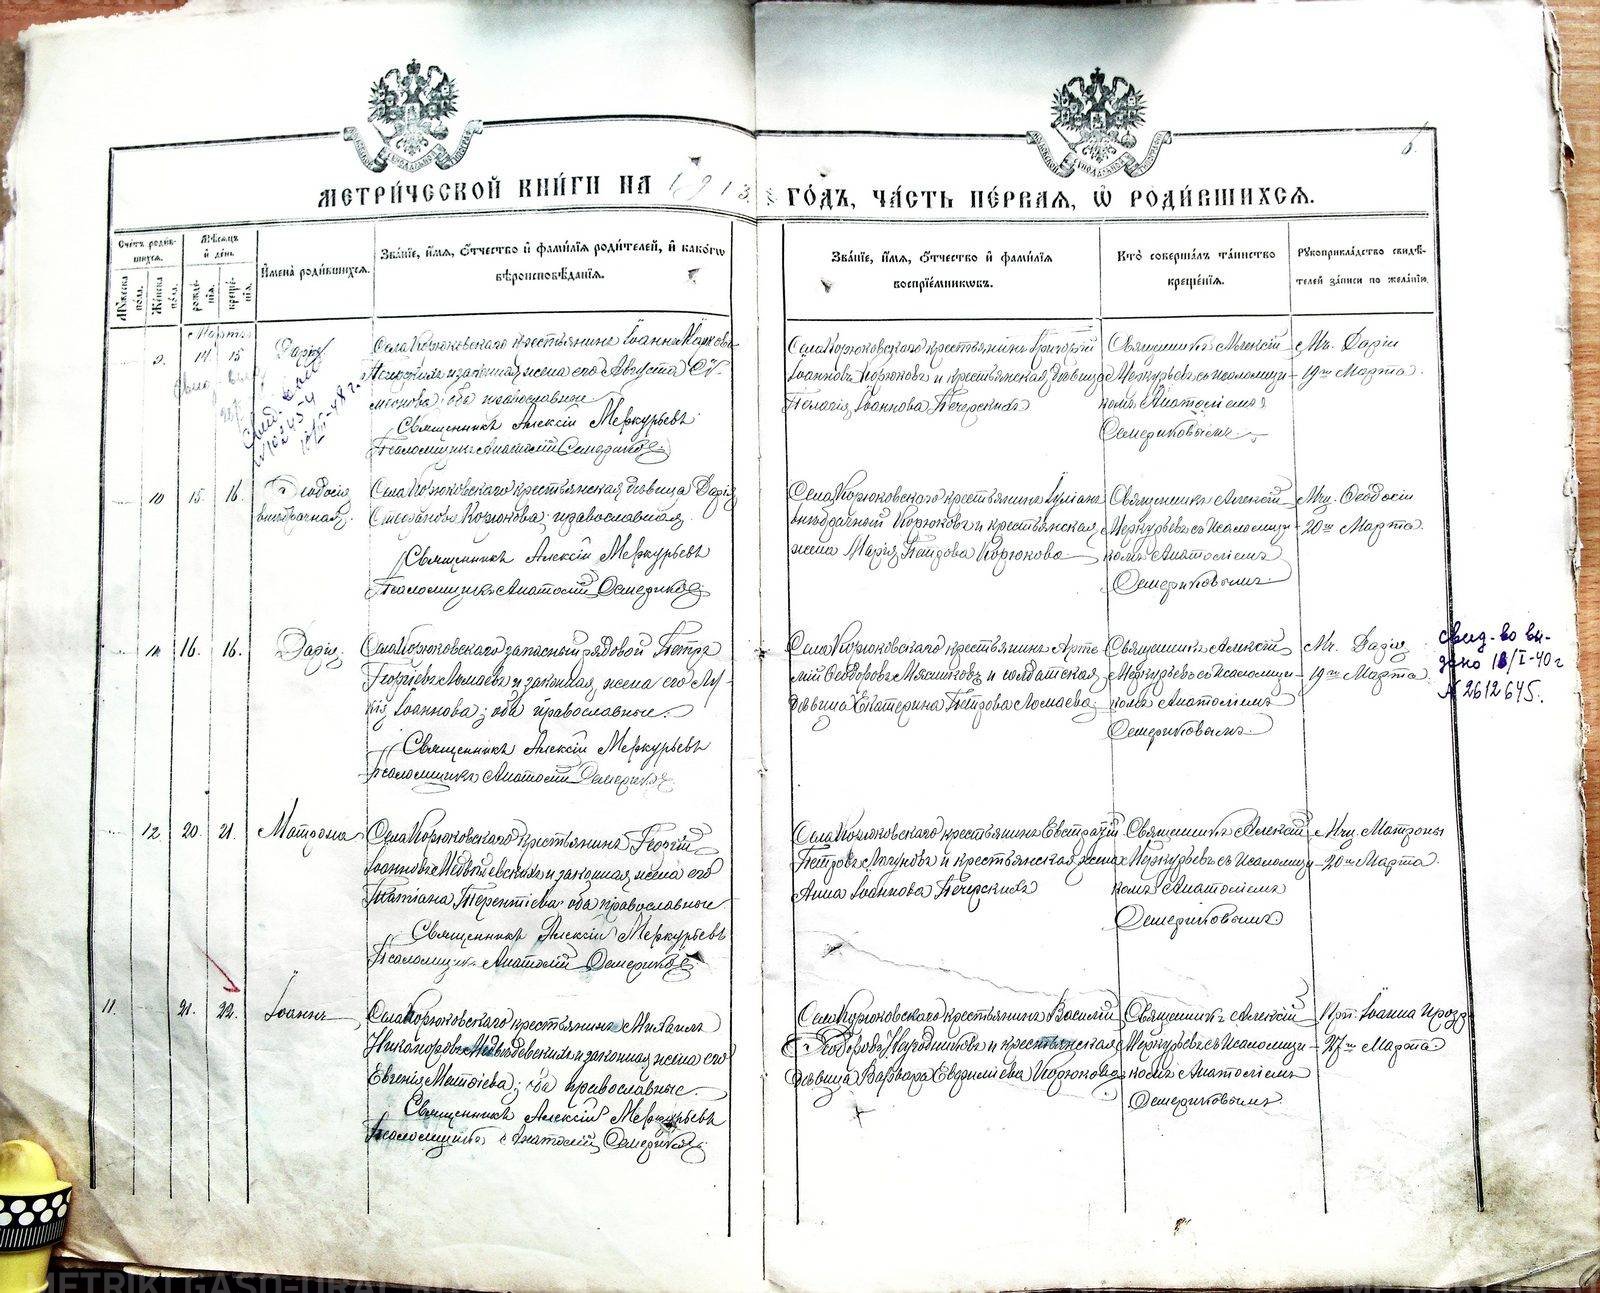 МЕТРИ́ЧЕСКОЙ КНИ́ГИ НА 1913
ГО́ДЪ, ЧА́СТЬ ПЕ́РВАЯ, Ѡ РОДИ́ВШИХСЯ.
6.
Сче́тъ роди́в-
шихся.
Му́жеска
пола.
Же́нска
по́ла.
Мѣ́сяцъ
и де́нь.
рожде́-
нїя.
креще́-
нїя.
Имена̀ роди́вшихся.
Зва́нїе, и́мя, о́тчество и фами́лїя роди́телей, и како́гѡ
вѣроисповѣ́данїя.
Зва́нїе, и́мя, о́тчество и фами́лїя
воспрїе́мниковъ.
Кто̀ соверша́лъ та́инство
креще́нїя.
Рукоприкла́дство свидѣ́-
телей за́писи по жела́нїю.
Марта
9. 14 15
Дарія
Села Корюковскаго крестьянинъ Іоаннъ
и законная жена его Августа
оба православные
Священникъ Алексій Меркурьевъ
Псаломщикъ Анатолій Семериковъ
Села Корюковскаго крестьянинъ Григорій
Іоанновъ Корюковъ и крестьянская дѣвица
Пелагія Іоаннова Печерскихъ
Священникъ Алексій
Меркурьевъ съ псаломщи-
комъ Анатоліемъ
Семериковымъ.
Мц. Даріи
19го Марта.
10 15. 16.
Ѳеодосія
внѣбрачная.
Села Корюковскаго крестьянская дѣвица Дарія
Стефанова Корюкова; православная.
Священникъ Алексій Меркурьевъ
Псаломщикъ Анатолій Семериковъ
Села Корюковскаго крестьянинъ Іуліанъ
внѣбрачный Корюковъ и крестьянская
жена Марія Петрова Корюкова
Священникъ Алексій
Меркурьевъ съ псаломщи-
комъ Анатоліемъ
Семериковымъ
Мц. Ѳеодосіи
20го Марта.
11. 16. 16.
Дарія.
Села Корюковскаго запасный рядовой Петръ
Георгіевъ Ломаевъ и законная жена его Лу-
кія Іоаннова; оба православные.
Священникъ Алексій Меркурьевъ
Псаломщикъ Анатолій Семериковъ
Села Корюковскаго крестьянинъ Арте-
мій Ѳеодоровъ Мясниковъ и солдатская
дѣвица Екатерина Петрова Ломаева.
Священникъ Алексій
Меркурьевъ съ псаломщи-
комъ Анатоліемъ
Семериковымъ.
Мц. Даріи
19го Марта.
свид-во вы-
дано 18/I-40 г
№ 2612645.
12 20. 21.
Матрона
Села Корюковскаго крестьянинъ Георгій
Іоанновъ Медвѣдевскихъ и законная жена его
Татіана Терентіева; оба православные
Священникъ Алексій Меркурьевъ
Псаломщикъ Анатолій Семериковъ
Села Корюковскаго крестьянинъ Евстратій
Петровъ Логуновъ и крестьянская жена
Анна Іоаннова Печерскихъ
Священникъ Алексій
Меркурьевъ съ псаломщи-
комъ Анатоліемъ
Семериковымъ
Мц. Матроны
20го Марта.
11. 21. 22.
Іоаннъ
Села Корюковскаго крестьянинъ Михаилъ
Никаноровъ Медвѣдевскихъ и законная жена его
Евгенія Матѳіева; оба православные.
Священникъ Алексій Меркурьевъ
Псаломщикъ Анатолій Семериковъ
Села Корюковскаго крестьянинъ Василій
Ѳеодоровъ и крестьянская
дѣвица Варвара Евфиміева Корюкова
Священникъ Алексій
Меркурьевъ съ псаломщи-
комъ Анатоліемъ
Семериковымъ
Прп. Іоанна Прозр.
27го Марта.